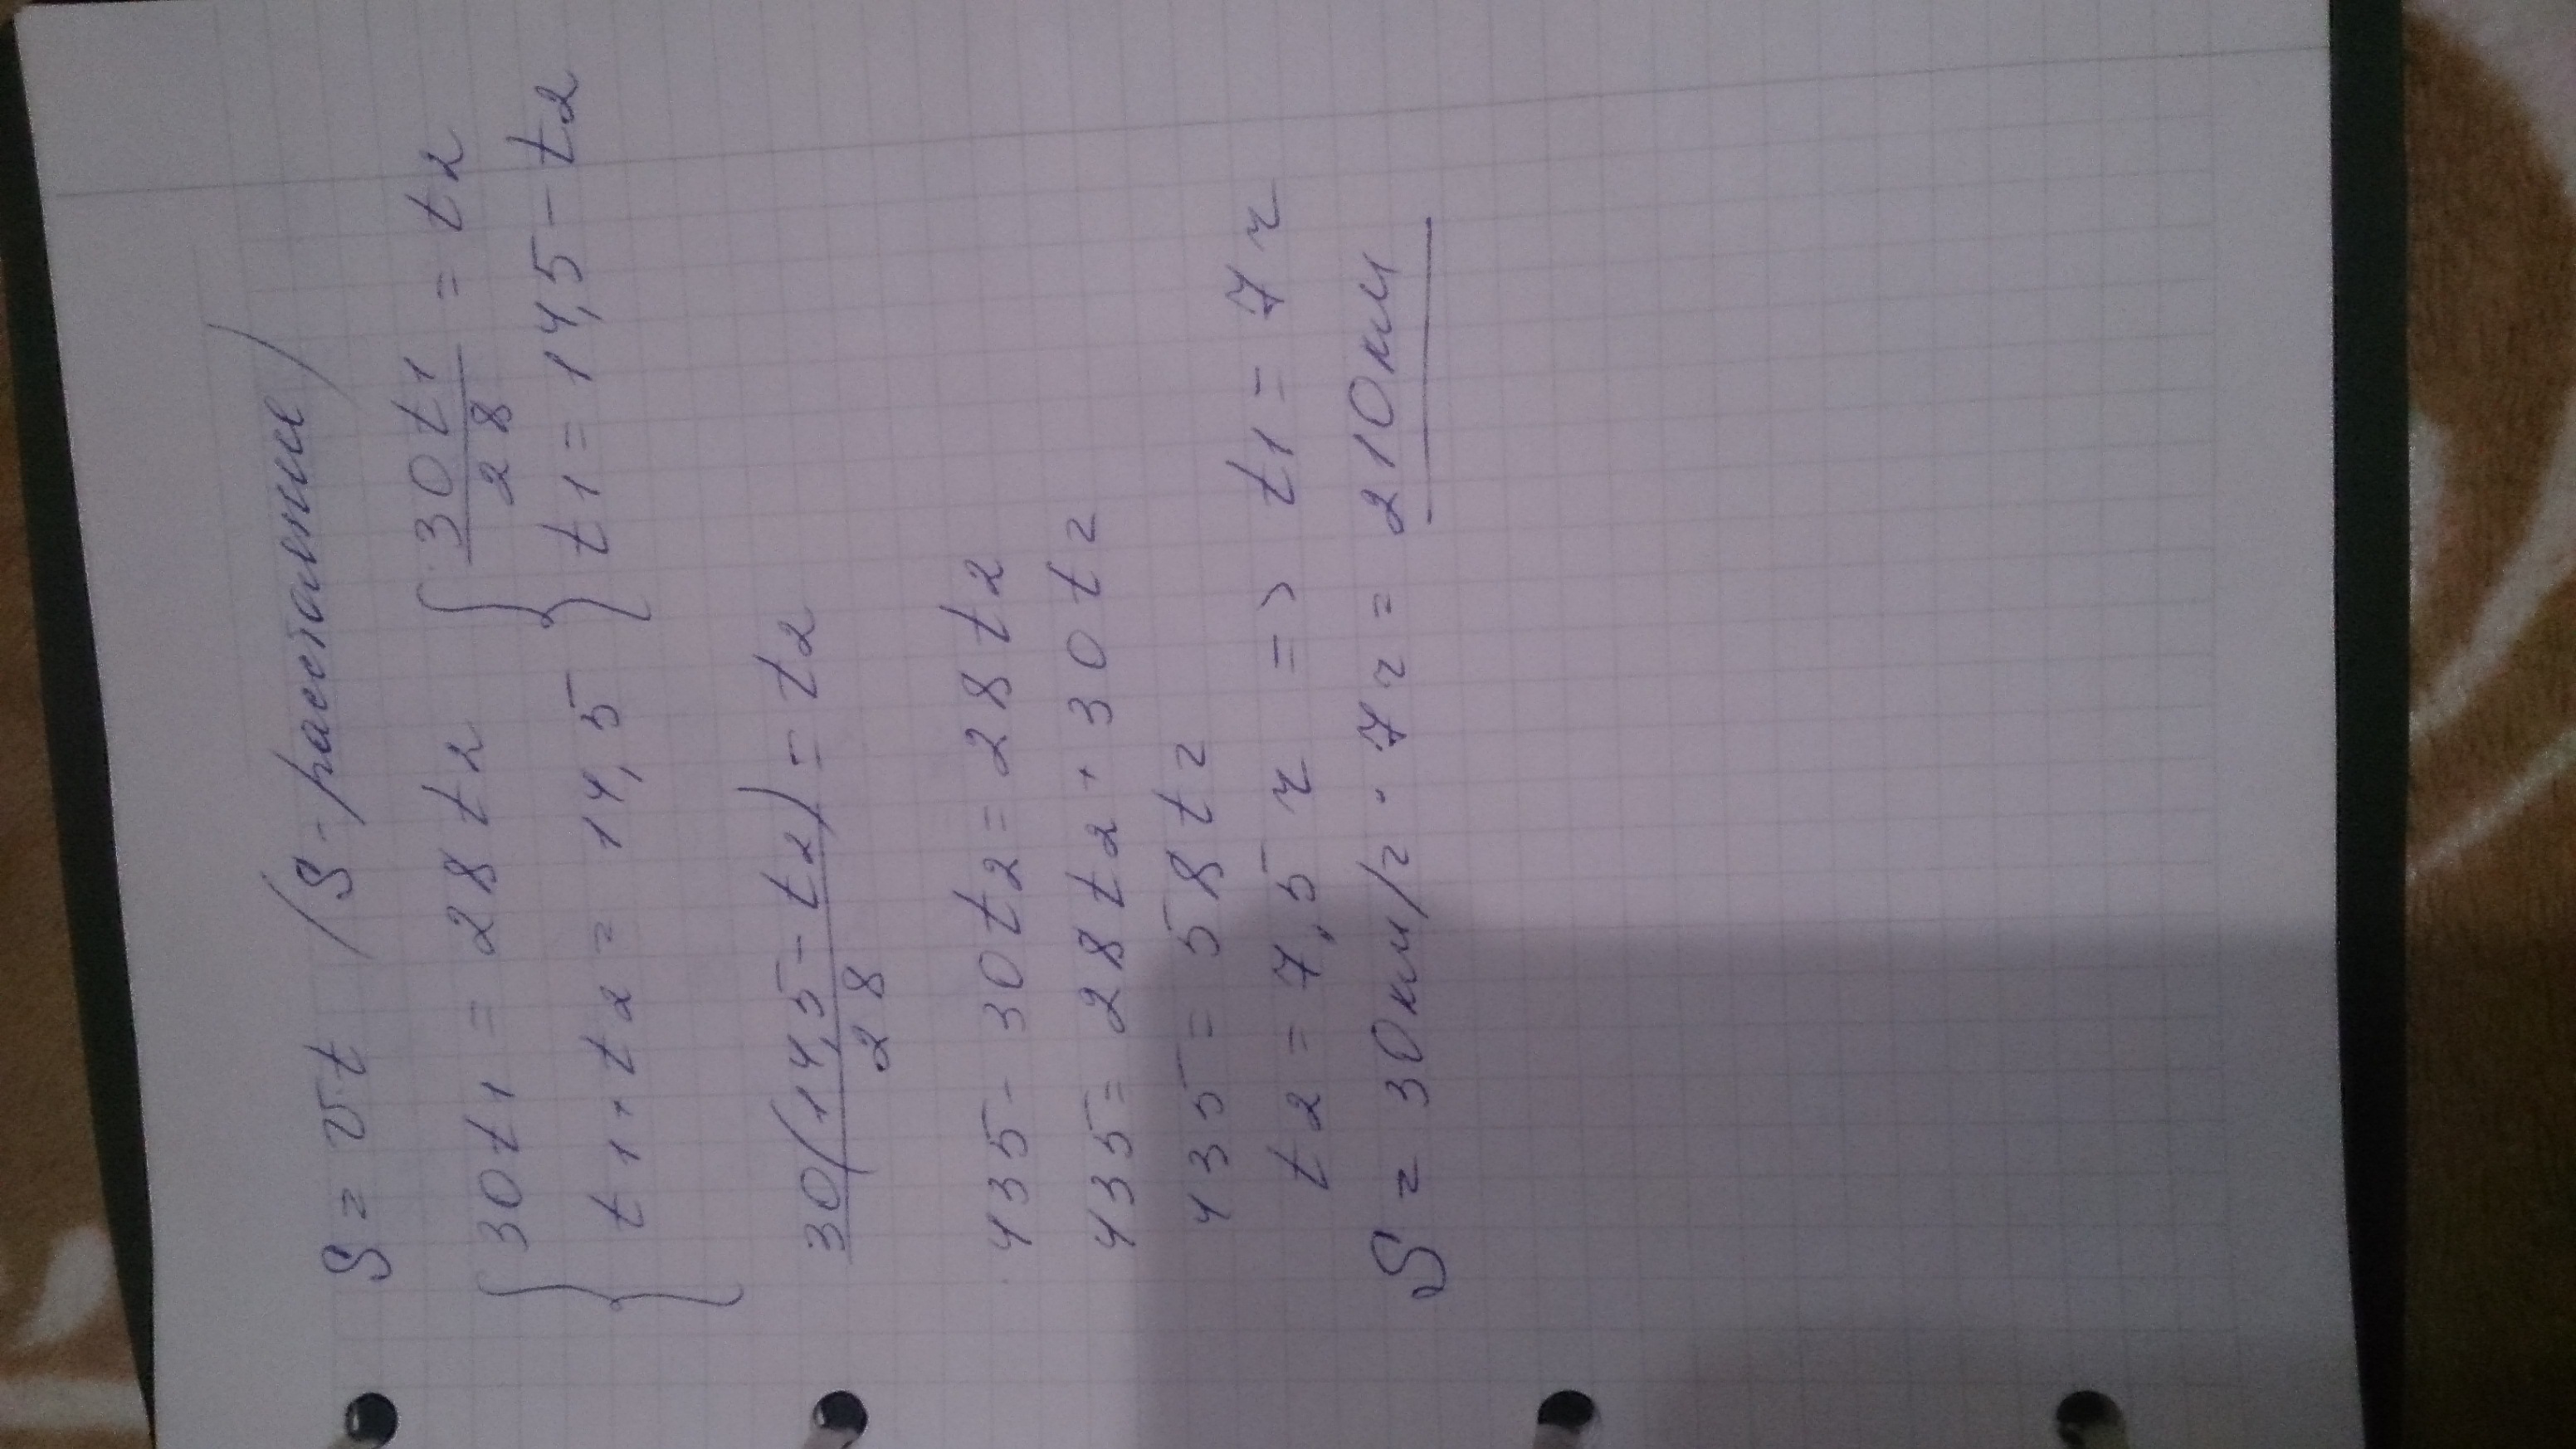 S = vt (S - расстояние)
{ 30t1 = 28t2 { 30t1/28 = t2
t1 + t2 = 14,5 t1 = 14,5 - t2
30(14,5 - t2)/28 = t2
435 - 30t2 = 28t2
435 = 28t2 + 30t2
435 = 58t2
t2 = 7,5 ч => t1 = 7 ч
S = 30км/ч · 7ч = 210км